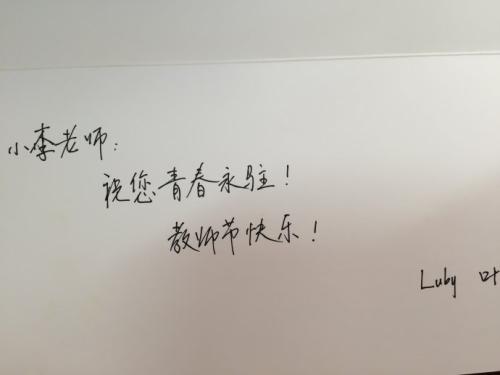 小李老师：
祝您青春永驻！
教师节快乐！
Luby 叶